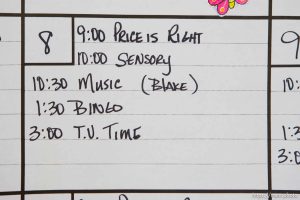 8
9:00 PRICE IS RIGHT
10:00 SENSORY
10:30 MUSIC (BLAKE)
1:30 BINGO
3:00 T.V. TIME
9
10:3
1:30
3:0